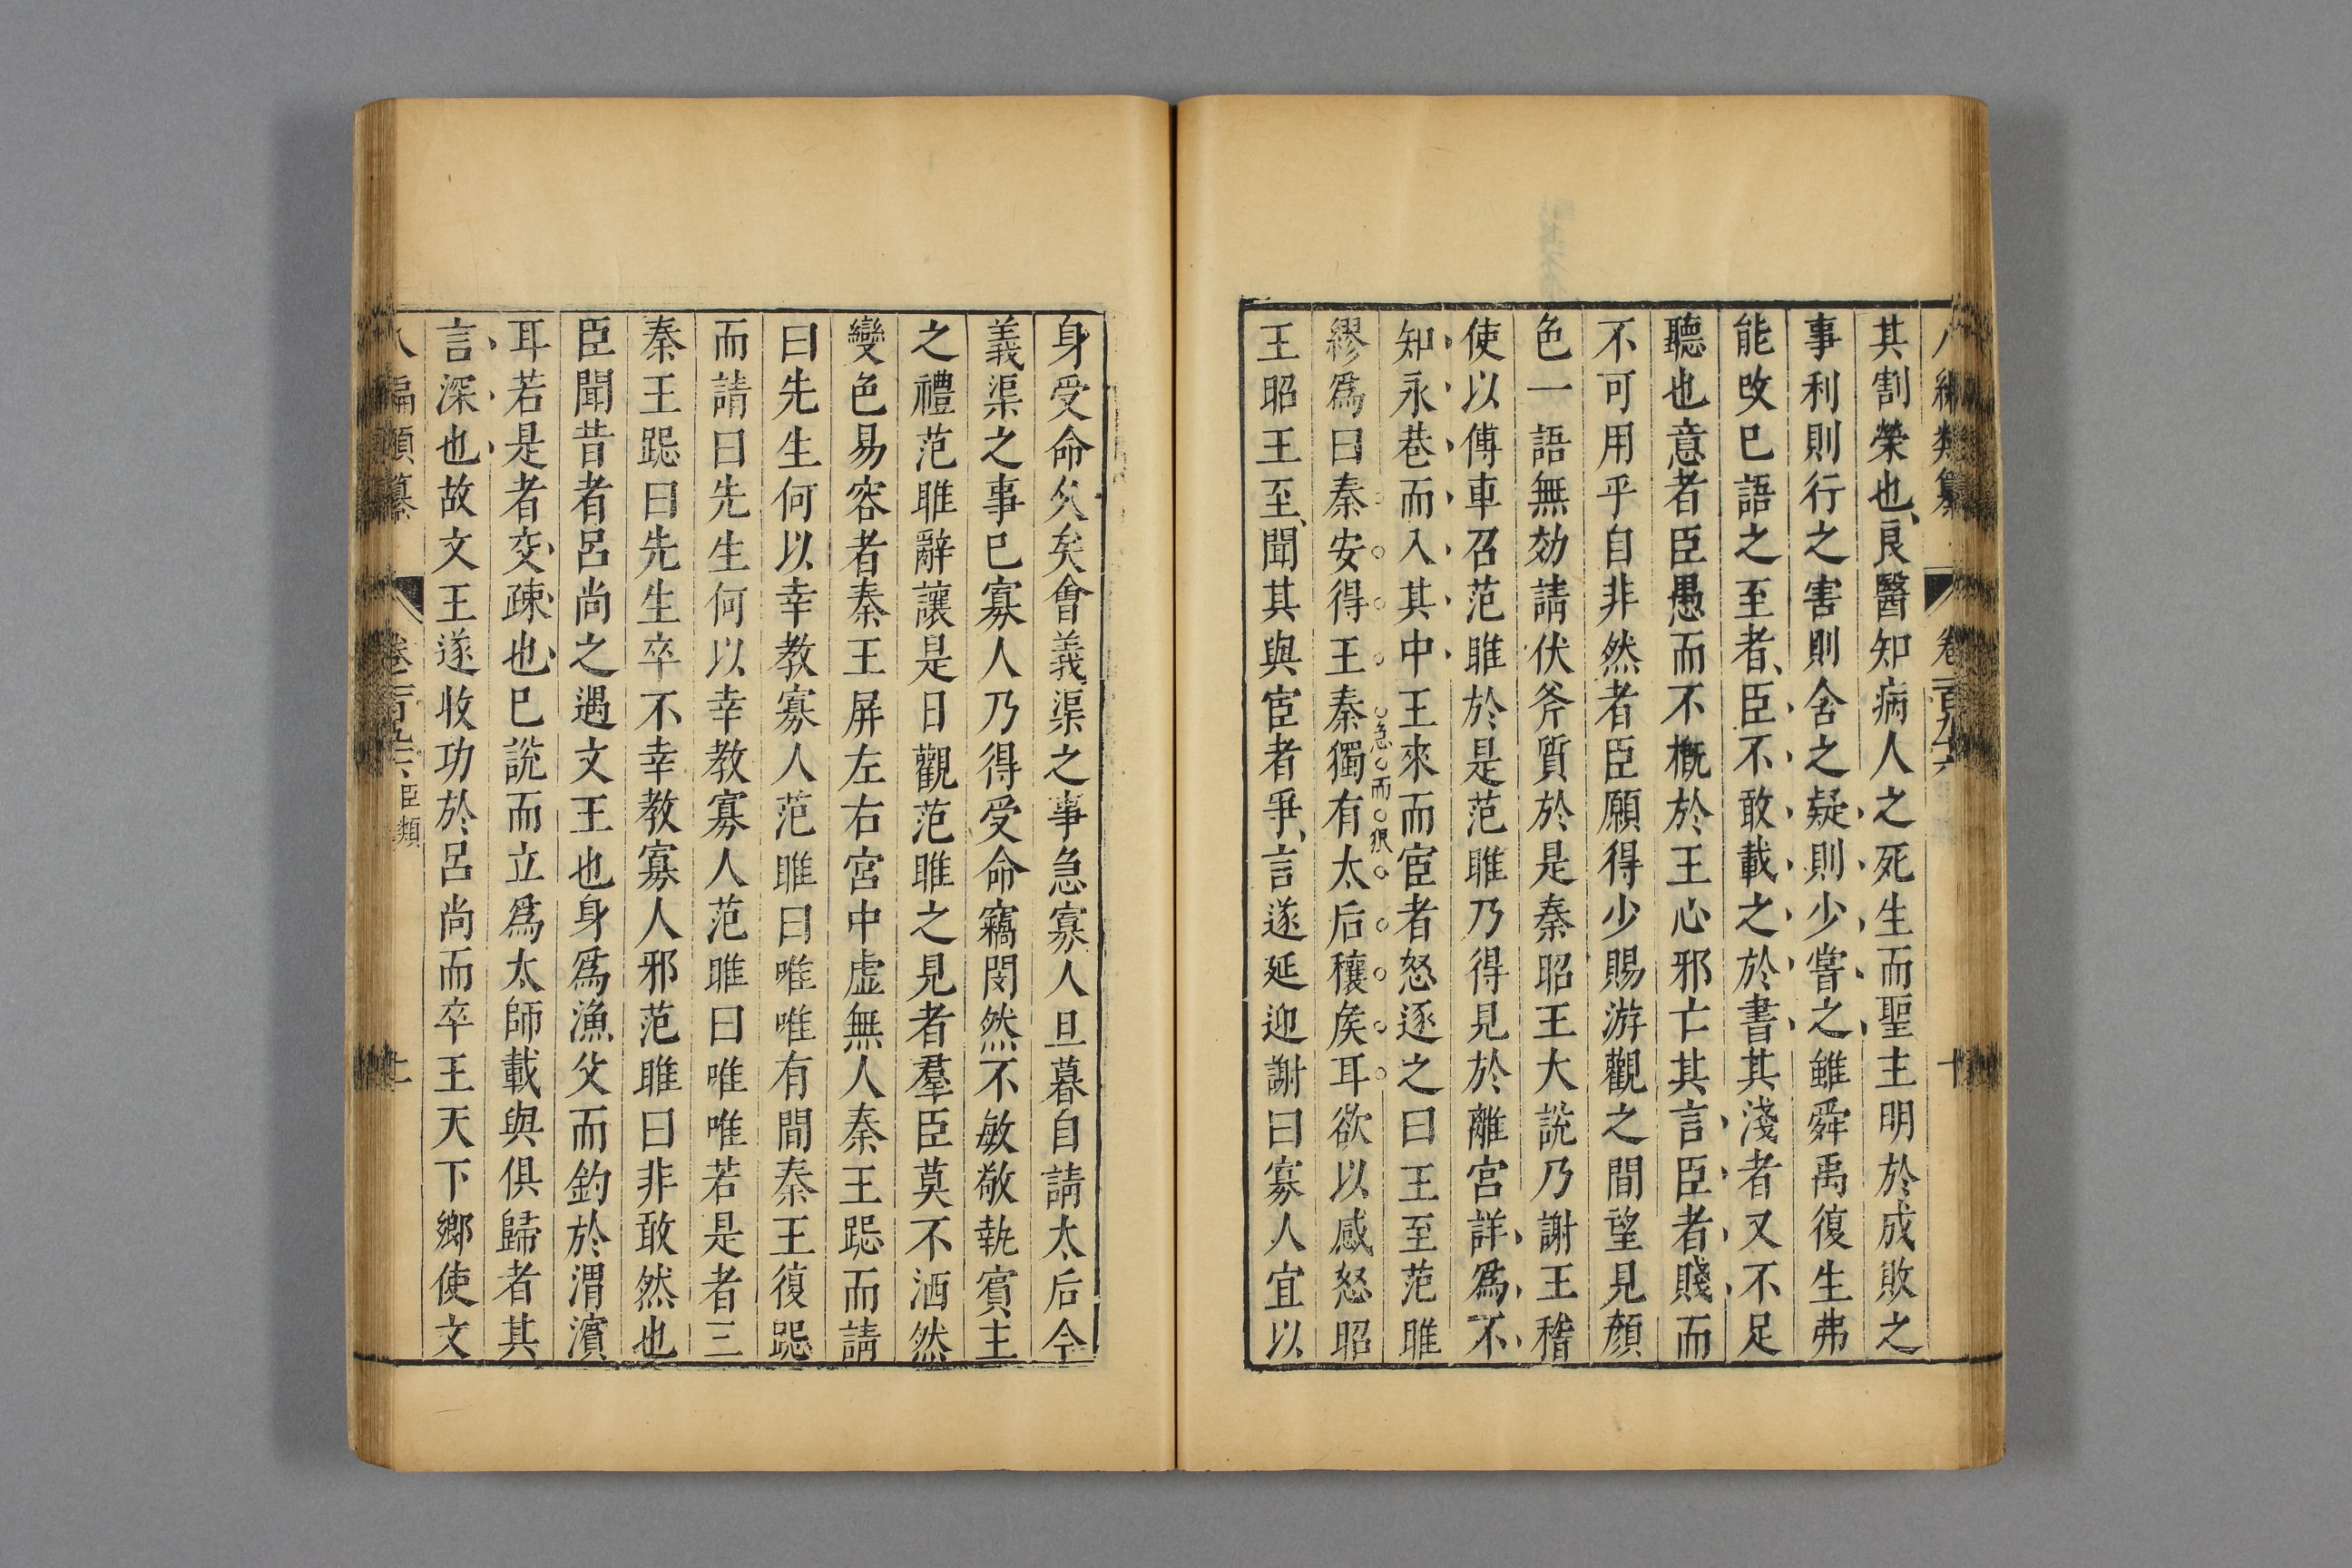 八編類纂 卷二百九六 十
其割榮也良醫知病人之死生而聖主明於成敗之
事利則行之害則舍之疑則少嘗之雖舜禹復生弗
能改已語之至者臣不敢載之於書其淺者又不足
聽也意者臣愚而不概於王心邪亡其言臣者賤而
不可用乎自非然者臣願得少賜游觀之間望見顏
色一語無効請伏斧質於是秦昭王大說乃謝王稽
使以傳車召范睢於是范睢乃得見於離宮詳爲不
知永巷而入其中王來而宦者怒逐之曰王至范睢
急而狠
繆爲曰秦安得王秦獨有太后穰矦耳欲以感怒昭
王昭王至聞其與宦者爭言遂延迎謝曰寡人宜以
身受命久矣會義渠之事急寡人旦暮自請太后今
義渠之事已寡人乃得受命竊閔然不敏敬執賓主
之禮范睢辭讓是日觀范睢之見者羣臣莫不洒然
變色易容者秦王屏左右宮中虛無人秦王跽而請
曰先生何以幸教寡人范睢曰唯唯有間秦王復跽
而請曰先生何以幸教寡人范睢曰唯唯若是者三
秦王跽曰先生卒不幸教寡人邪范睢曰非敢然也
臣聞昔者呂尚之遇文王也身爲漁父而釣於渭濱
耳若是者交疎也已說而立爲太師載與俱歸者其
言深也故文王遂收功於呂尚而卒王天下鄉使文
八編類纂 臣類